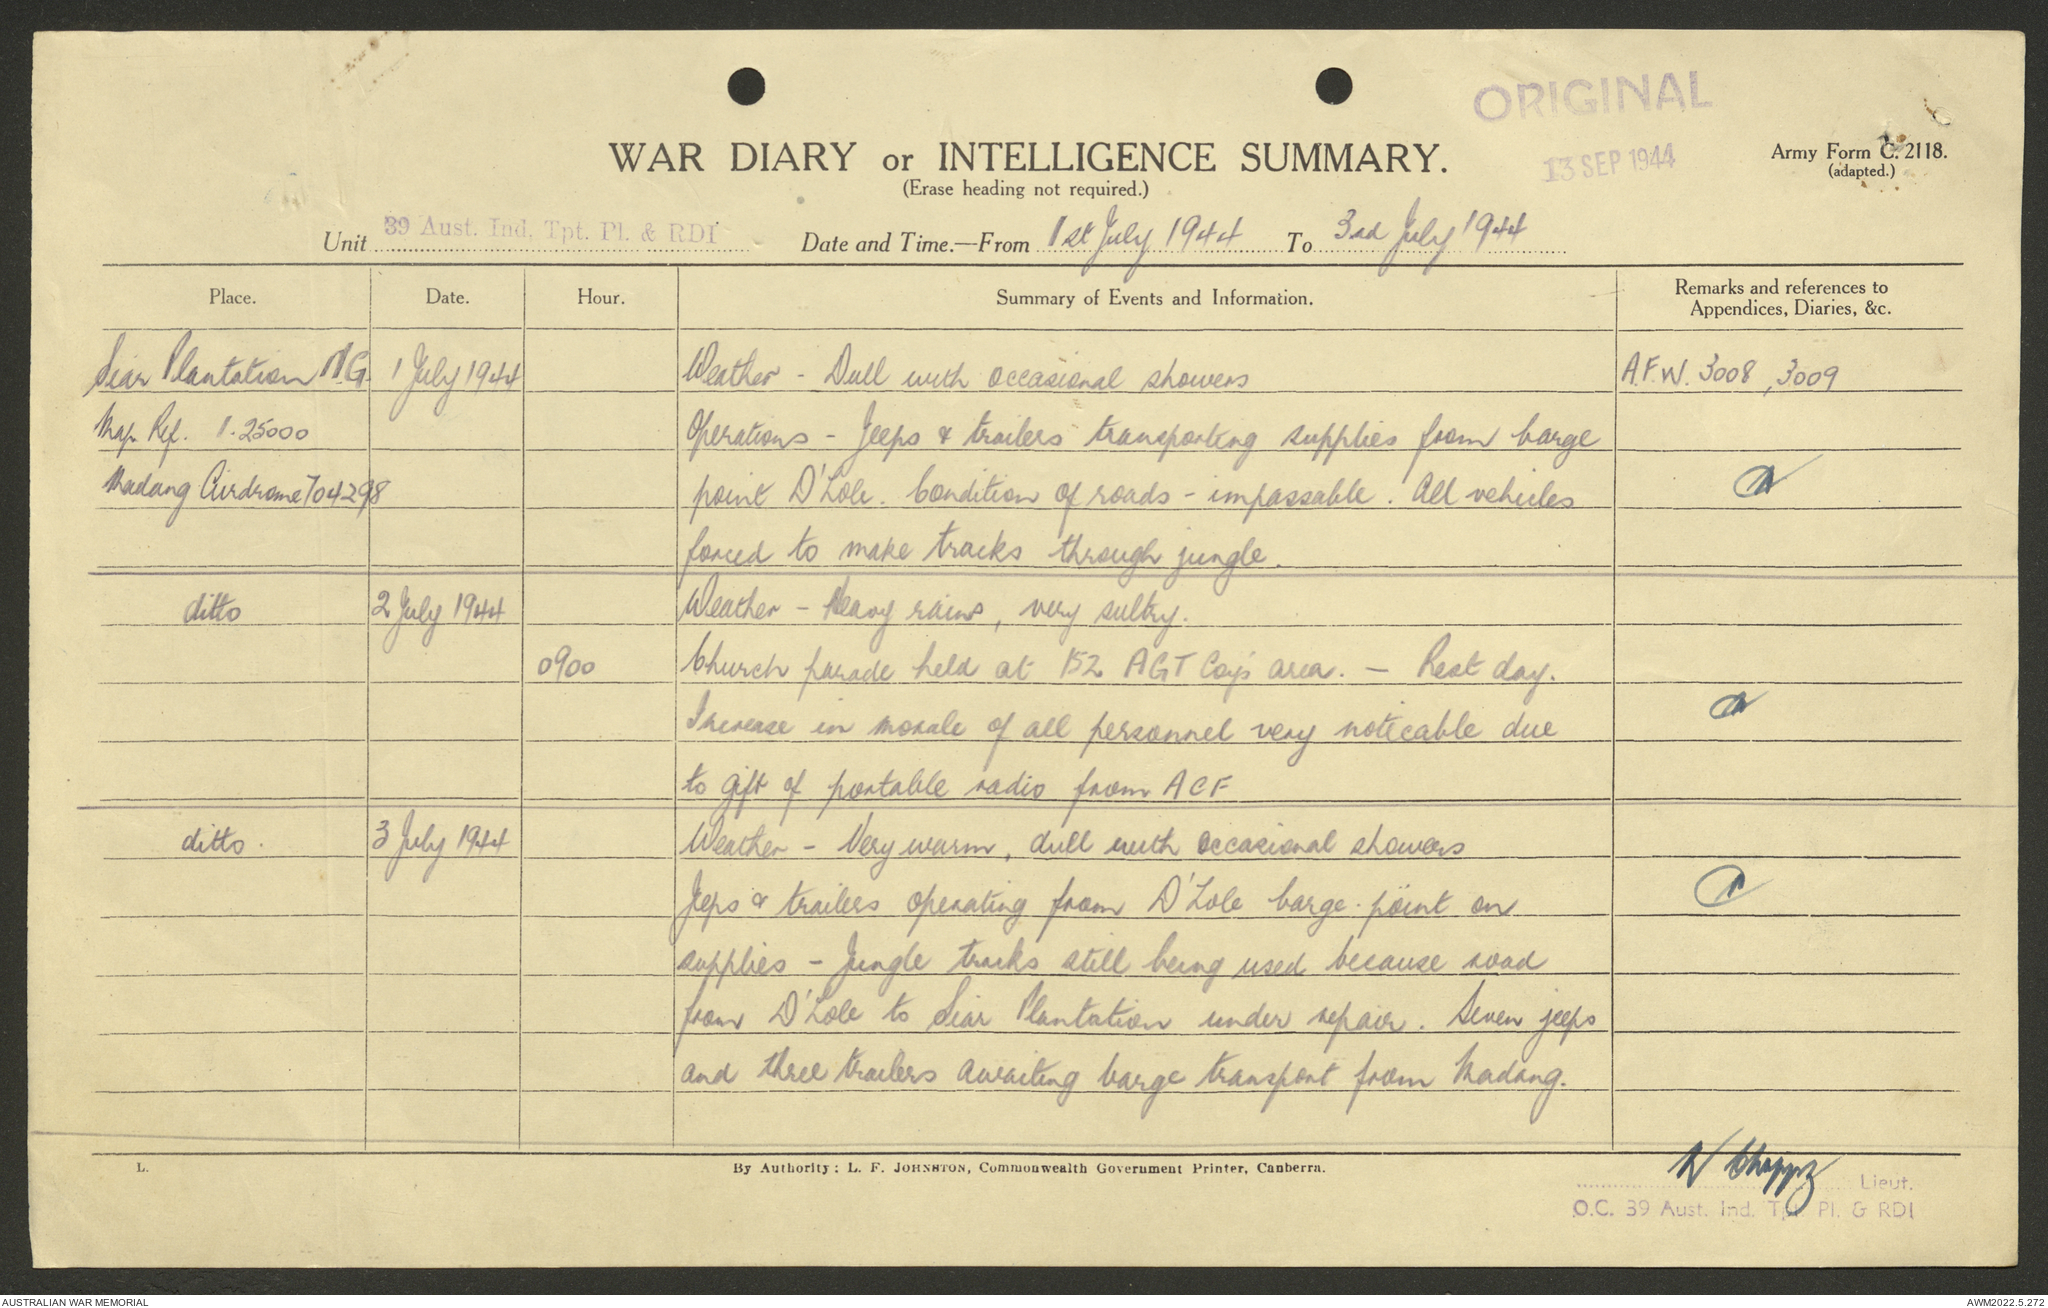 ORIGINAL
13 SEP 1944
WAR DIARY or INTELLIGENCE SUMMARY.
(Erase heading not required.)
Army Form C. 2118.
(adapted.)
Unit 39 Aust. Ind. Tpt. Pl. & RDI Date and Time.—From 1st July 1944 To 3rd July 1944
Place. Date. Hour. Summary of Events and Information. Remarks and references to Appendices, Diaries, &c.
Siar Plantation N.G. 1 July 1944 Weather - Dull with occasional showers A.F.W. 3008, 3009
Map Ref. 1.25000 Operations - Jeeps & trailers transporting supplies from barge
Madang Airdrome 704298 point D'Lole. Condition of roads - impassable. All vehicles
forced to make tracks through jungle.
ditto 2 July 1944 Weather - Heavy rains, very sultry.
0900 Church parade held at 152 AGT Coy's area. - Rest day.
Increase in morale of all personnel very noticable due
to gift of portable radio from ACF
ditto. 3 July 1944 Weather - Very warm, dull with occasional showers
Jeeps & trailers operating from D'Lole barge point on
supplies - Jungle tracks still being used because road
from D'Lole to Siar Plantation under repair. Seven jeeps
and three trailers awaiting barge transport from Madang.
L. By Authority: L. F. JOHNSTON, Commonwealth Government Printer, Canberra.
Lieut.
O.C. 39 Aust. Ind. Tpt. Pl. & RDI
AUSTRALIAN WAR MEMORIAL AWM2022.5.272